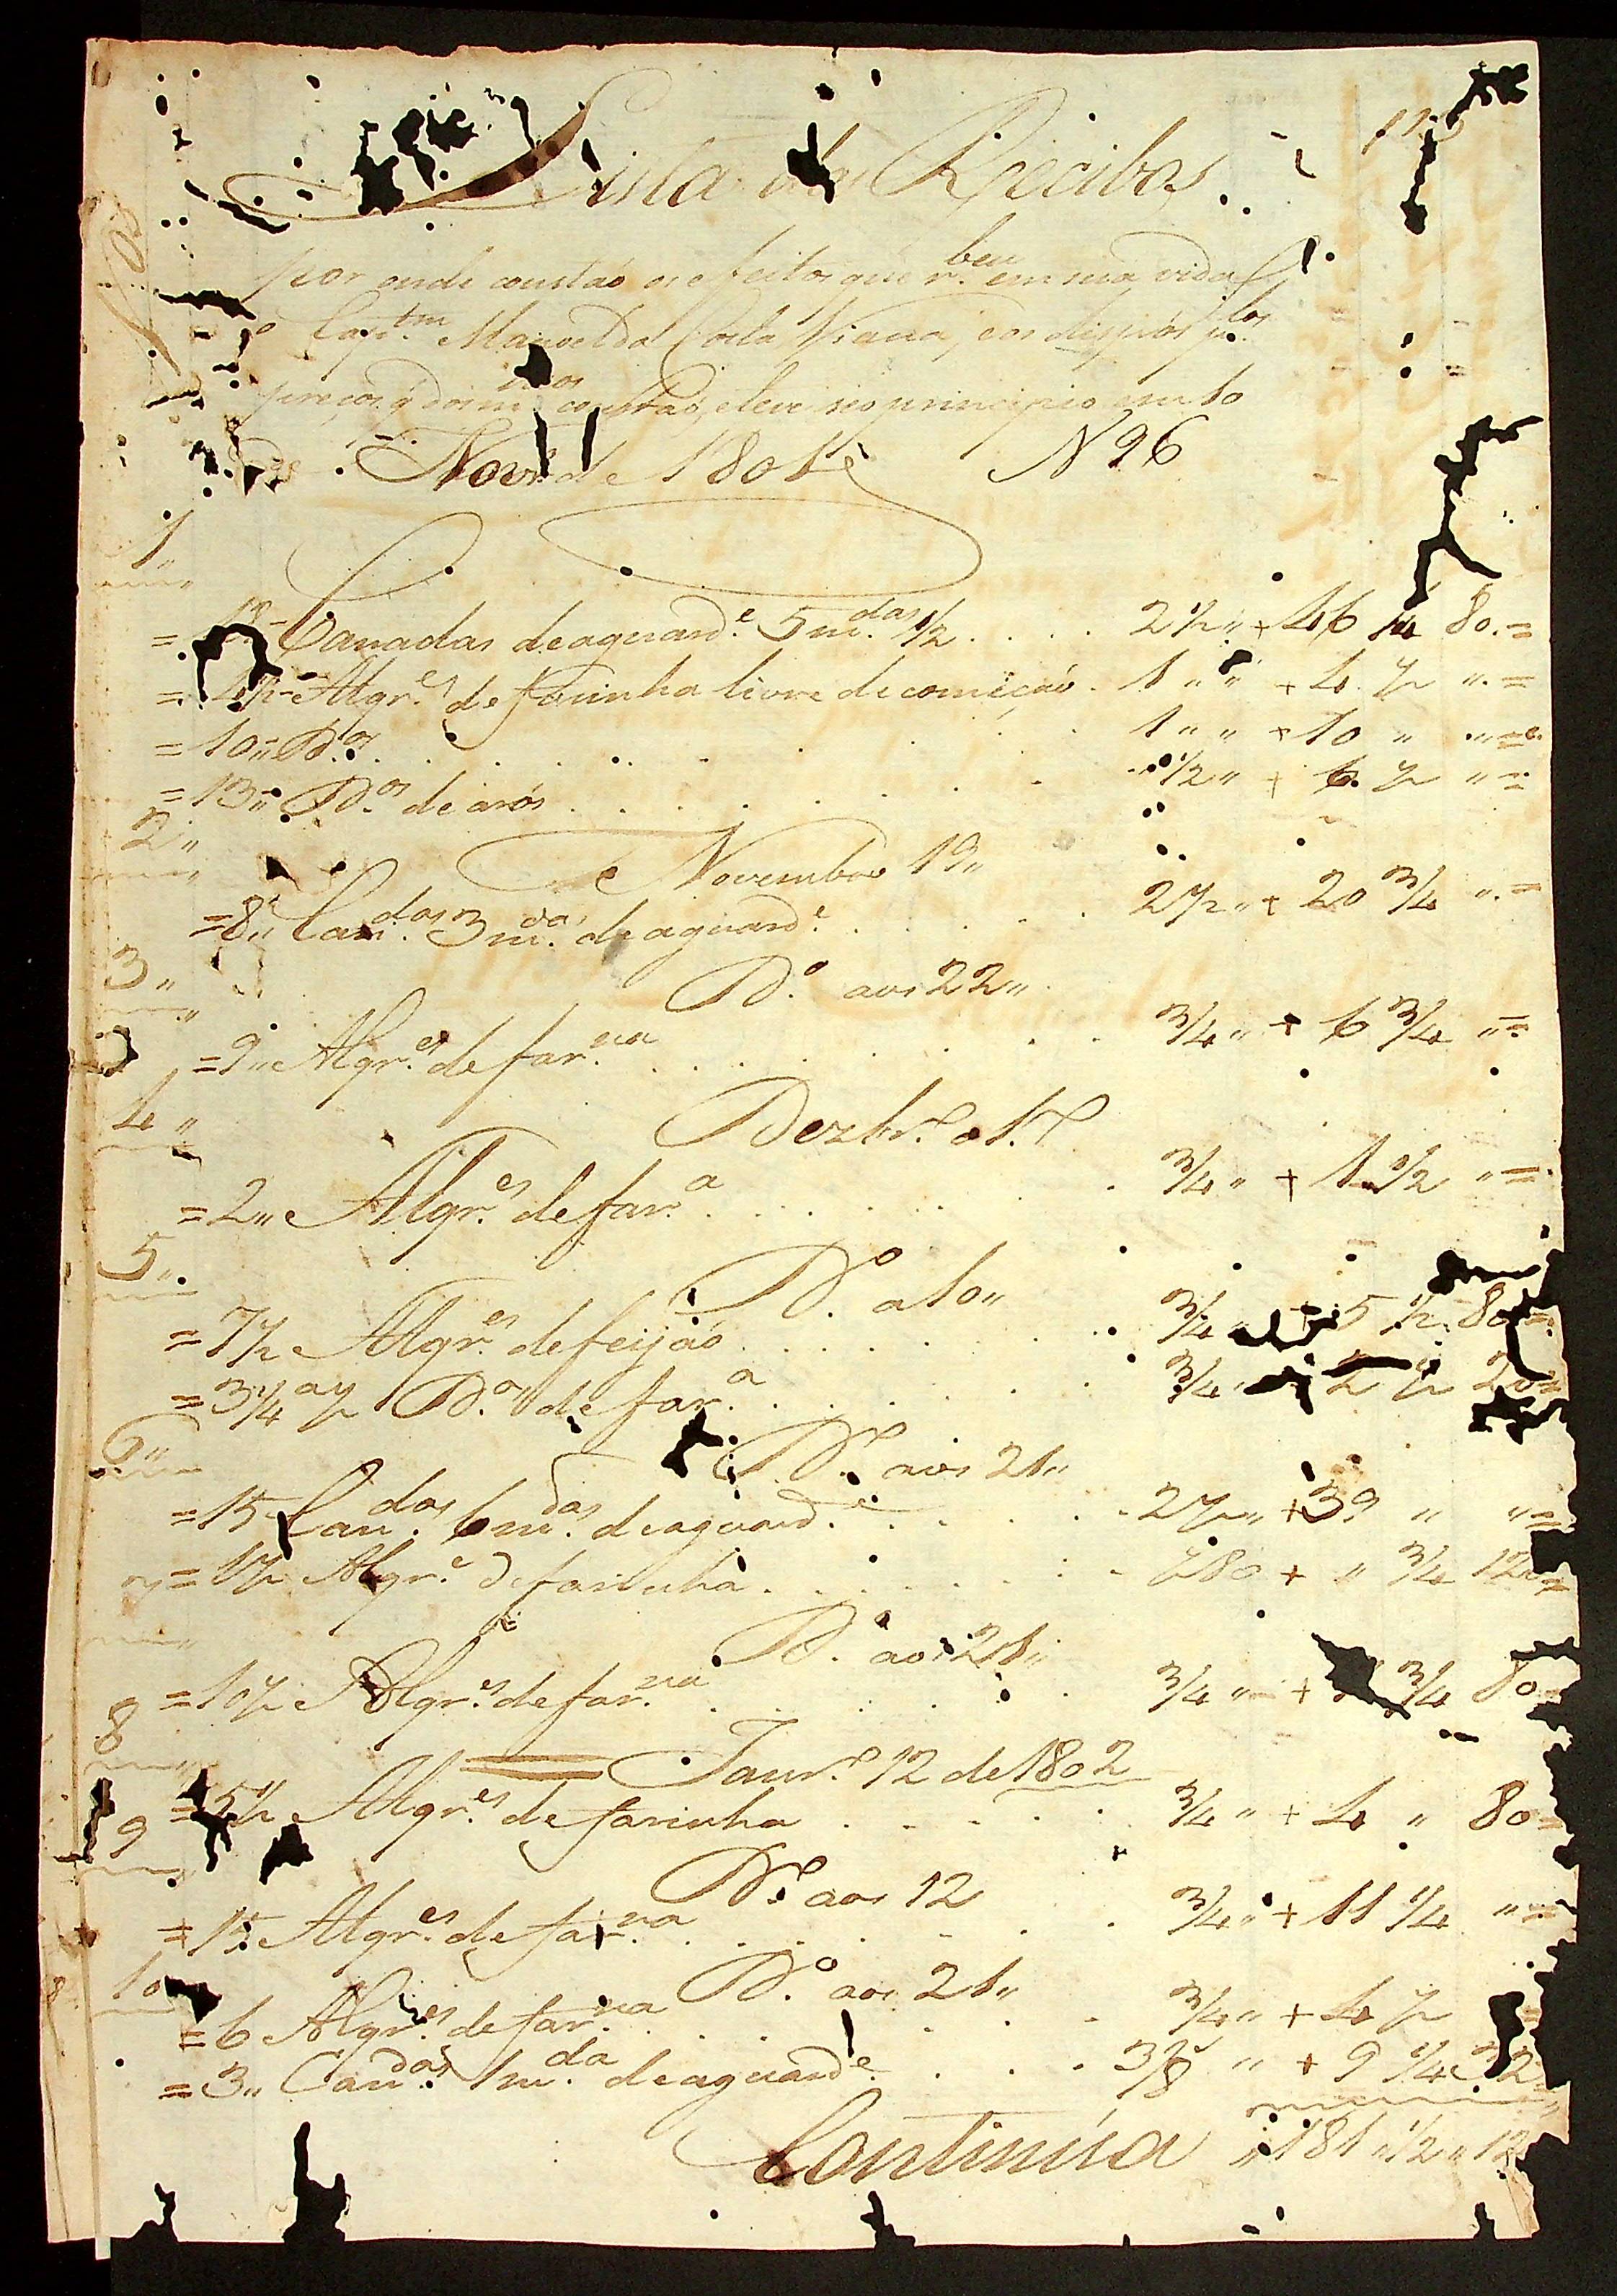 Lista dos Recibos.
por onde constaõ os efeitos que r.beu em sua vida
o Capt.m Manoel da Costa Viana, e os dispôs p.los
preços q' dos m.mos constaõ, e teve seo principio em 10
de Novr.o de 1801 N 26
1"
= 18" Canadas de aguard.e 5 m.das 1/2 . . . . 2 1/2 " + 46 1/4 80. =
= Algr.es de farinha livre de comiçaõ . 1 " " + 4 1/2 " =
= 10 " D.os . . . . . 1 " " + 10 " " =
= 13 " D.os de arôs . . . . . 1/2 " + 6 1/2 " =
2"
Novembro 19"
= 8" Can.das 3 m.das de aguard.e . . . . 2 1/2 " + 20 3/4 " =
3"
D.o aos 22"
= 9" Algr.es de far.nha . . . . . 3/4 " + 6 3/4 " =
4"
Dezbr.o 1.o
= 2" Algr.es de far.a . . . . . 3/4 " + 1 1/2 " =
5"
D.o a 10"
= 7 1/2 Algr.es de feijaõ . . . . . 3/4 " + 5 1/2 80 =
= 3 1/4 a 1/2 D.os de far.a . . . . . 3/4 " 2 1/2 20 =
6"
D.o aos 21"
= 15 Can.das 6 m.das de aguard.e . . . . . 2 1/2 " + 39 " " =
7 = 1 1/2 Algr.e de farinha . . . . . 1/2 80 + " 3/4 120 =
D.o aos 21"
= 10 1/2 Algr.es de far.nha . . . . . 3/4 " + 3/4 80
8
Janr.o 12 de 1802
= 5 1/2 Algr.es de farinha . . . . . 3/4 " + 4 " 80 =
9
D.o aos 12
= 15 Algr.es de far.nha . . . . . 3/4 " + 11 1/4 " =
10
D.o aos 21"
= 6 Algr.es de far.nha . . . . . 3/4 " + 4 1/2 =
= 3" Can.das 1 m.da de aguard.e . . . . 3 1/8 " + 9 1/4 32
Continúa " 181 " 1/2 " 12